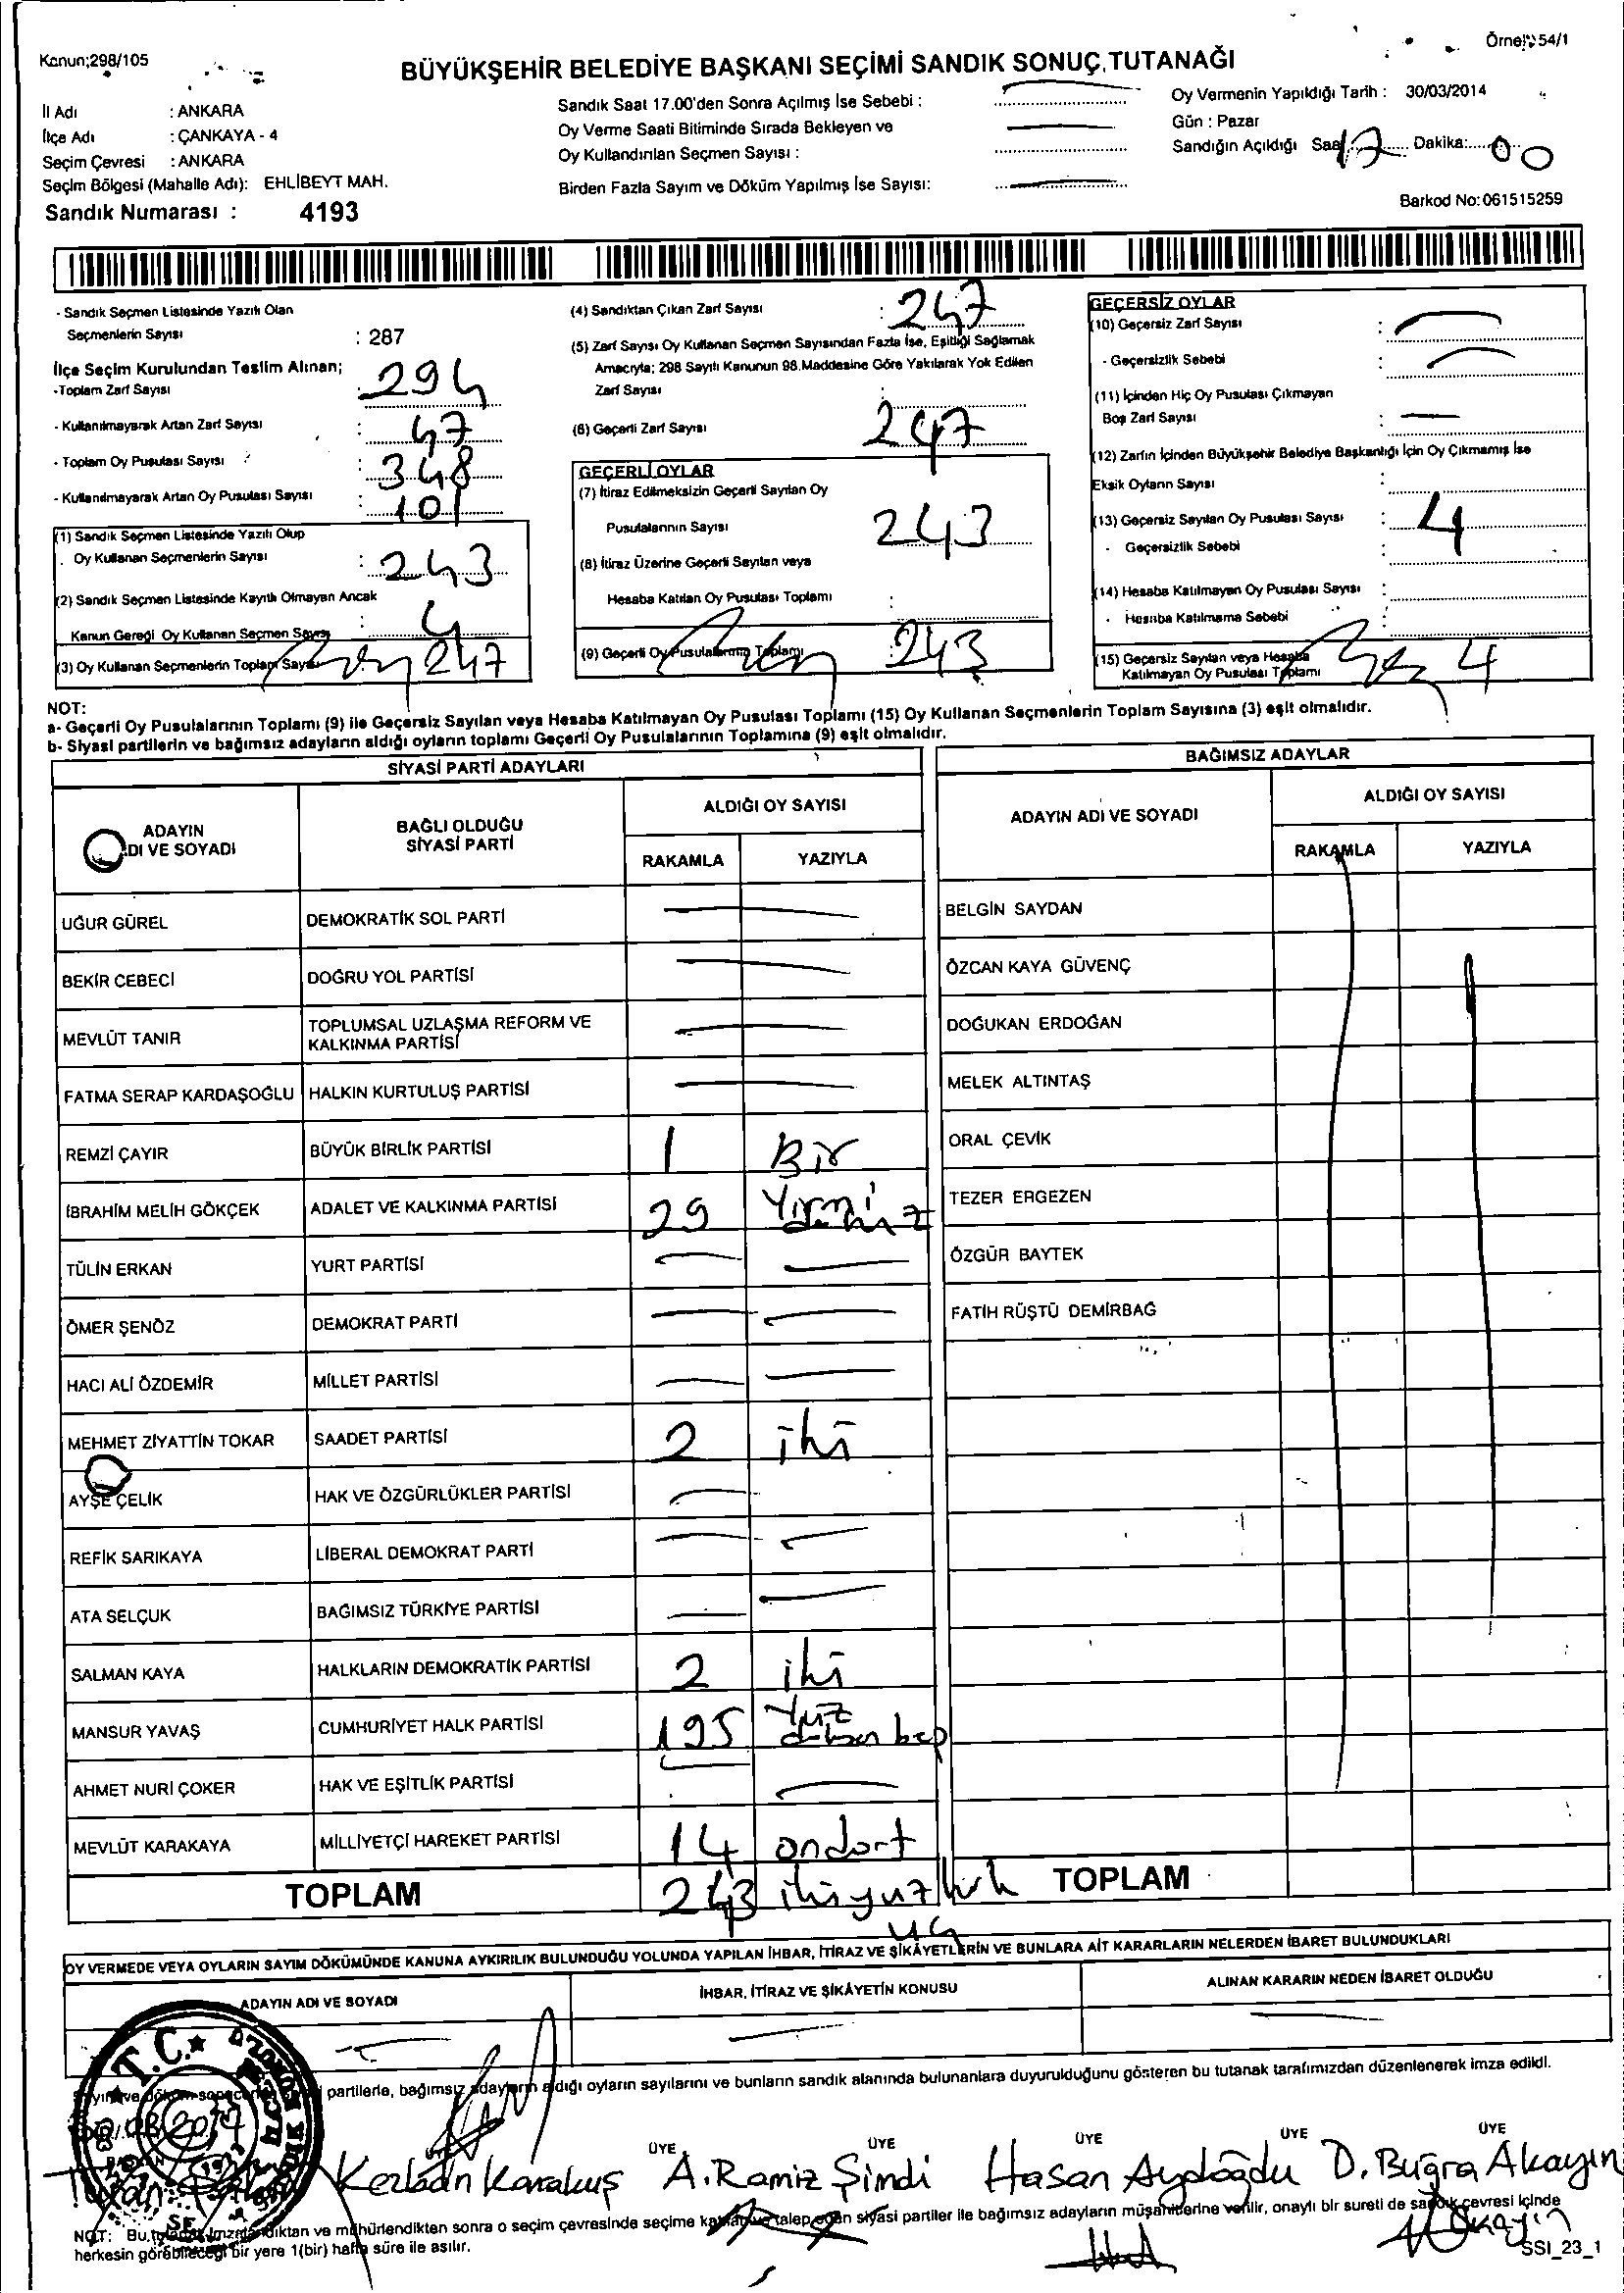 Kanun;298/105
Örnek 54/1
BÜYÜKŞEHİR BELEDİYE BAŞKANI SEÇİMİ SANDIK SONUÇ TUTANAĞI
İl Adı : ANKARA
İlçe Adı : ÇANKAYA - 4
Seçim Çevresi : ANKARA
Seçim Bölgesi (Mahalle Adı): EHLİBEYT MAH.
Sandık Numarası : 4193
Sandık Saat 17.00'den Sonra Açılmış İse Sebebi :
Oy Verme Saati Bitiminde Sırada Bekleyen ve
Oy Kullandırılan Seçmen Sayısı :
Birden Fazla Sayım ve Döküm Yapılmış İse Sayısı:
Oy Vermenin Yapıldığı Tarih : 30/03/2014
Gün : Pazar
Sandığın Açıldığı Saat 17 Dakika: 00
Barkod No:061515259
- Sandık Seçmen Listesinde Yazılı Olan
Seçmenlerin Sayısı : 287
İlçe Seçim Kurulundan Teslim Alınan;
-Toplam Zarf Sayısı 294
- Kullanılmayarak Artan Zarf Sayısı : 47
- Toplam Oy Pusulası Sayısı : 348
- Kullanılmayarak Artan Oy Pusulası Sayısı : 101
(1) Sandık Seçmen Listesinde Yazılı Olup
Oy Kullanan Seçmenlerin Sayısı : 243
(2) Sandık Seçmen Listesinde Kayıtlı Olmayan Ancak
Kanun Gereği Oy Kullanan Seçmen Sayısı : 4
(3) Oy Kullanan Seçmenlerin Toplam Sayısı 247
(4) Sandıktan Çıkan Zarf Sayısı : 247
(5) Zarf Sayısı Oy Kullanan Seçmen Sayısından Fazla İse, Eşitliği Sağlamak
Amacıyla; 298 Sayılı Kanunun 98.Maddesine Göre Yakılarak Yok Edilen
Zarf Sayısı :
(6) Geçerli Zarf Sayısı 247
GEÇERLİ OYLAR
(7) İtiraz Edilmeksizin Geçerli Sayılan Oy
Pusulalarının Sayısı 243
(8) İtiraz Üzerine Geçerli Sayılan veya
Hesaba Katılan Oy Pusulası Toplamı :
(9) Geçerli Oy Pusulalarının Toplamı : 243
GEÇERSİZ OYLAR
(10) Geçersiz Zarf Sayısı :
- Geçersizlik Sebebi :
(11) İçinden Hiç Oy Pusulası Çıkmayan
Boş Zarf Sayısı :
(12) Zarfın İçinden Büyükşehir Belediye Başkanlığı İçin Oy Çıkmamış İse
Eksik Oyların Sayısı :
(13) Geçersiz Sayılan Oy Pusulası Sayısı : 4
- Geçersizlik Sebebi :
(14) Hesaba Katılmayan Oy Pusulası Sayısı :
- Hesaba Katılmama Sebebi :
(15) Geçersiz Sayılan veya Hesaba
Katılmayan Oy Pusulası Toplamı 4
NOT:
a- Geçerli Oy Pusulalarının Toplamı (9) ile Geçersiz Sayılan veya Hesaba Katılmayan Oy Pusulası Toplamı (15) Oy Kullanan Seçmenlerin Toplam Sayısına (3) eşit olmalıdır.
b- Siyasi partilerin ve bağımsız adayların aldığı oyların toplamı Geçerli Oy Pusulalarının Toplamına (9) eşit olmalıdır.
SİYASİ PARTİ ADAYLARI
ADAYIN
ADI VE SOYADI
BAĞLI OLDUĞU
SİYASİ PARTİ
ALDIĞI OY SAYISI
RAKAMLA YAZIYLA
UĞUR GÜREL DEMOKRATİK SOL PARTİ
BEKİR CEBECİ DOĞRU YOL PARTİSİ
MEVLÜT TANIR TOPLUMSAL UZLAŞMA REFORM VE
KALKINMA PARTİSİ
FATMA SERAP KARDAŞOĞLU HALKIN KURTULUŞ PARTİSİ
REMZİ ÇAYIR BÜYÜK BİRLİK PARTİSİ 1 Bir
İBRAHİM MELİH GÖKÇEK ADALET VE KALKINMA PARTİSİ 29 Yirmi
TÜLİN ERKAN YURT PARTİSİ
ÖMER ŞENÖZ DEMOKRAT PARTİ
HACI ALİ ÖZDEMİR MİLLET PARTİSİ
MEHMET ZİYATTİN TOKAR SAADET PARTİSİ 2 iki
AYŞE ÇELİK HAK VE ÖZGÜRLÜKLER PARTİSİ
REFİK SARIKAYA LİBERAL DEMOKRAT PARTİ
ATA SELÇUK BAĞIMSIZ TÜRKİYE PARTİSİ
SALMAN KAYA HALKLARIN DEMOKRATİK PARTİSİ 2 iki
MANSUR YAVAŞ CUMHURİYET HALK PARTİSİ 195 Yüz
AHMET NURİ ÇOKER HAK VE EŞİTLİK PARTİSİ
MEVLÜT KARAKAYA MİLLİYETÇİ HAREKET PARTİSİ 14 ondort
TOPLAM 243 ikiyuz kırk
üç
BAĞIMSIZ ADAYLAR
ADAYIN ADI VE SOYADI
ALDIĞI OY SAYISI
RAKAMLA YAZIYLA
BELGİN SAYDAN
ÖZCAN KAYA GÜVENÇ
DOĞUKAN ERDOĞAN
MELEK ALTINTAŞ
ORAL ÇEVİK
TEZER ERGEZEN
ÖZGÜR BAYTEK
FATİH RÜŞTÜ DEMİRBAĞ
TOPLAM
OY VERMEDE VEYA OYLARIN SAYIM DÖKÜMÜNDE KANUNA AYKIRILIK BULUNDUĞU YOLUNDA YAPILAN İHBAR, İTİRAZ VE ŞİKÂYETLERİN VE BUNLARA AİT KARARLARIN NELERDEN İBARET BULUNDUKLARI
ADAYIN ADI VE SOYADI
İHBAR, İTİRAZ VE ŞİKÂYETİN KONUSU
ALINAN KARARIN NEDEN İBARET OLDUĞU
T.C.
partilerle, bağımsız adayların aldığı oyların sayılarını ve bunların sandık alanında bulunanlara duyurulduğunu gösteren bu tutanak tarafımızdan düzenlenerek imza edildi.
ÜYE ÜYE ÜYE ÜYE ÜYE
Kezban Karakuş A.Ramiz Şimdi Hasan Aydoğdu D. Buğra Akayın
NOT: Bu tutanak imzalandıktan ve mühürlendikten sonra o seçim çevresinde seçime katılan ve talep eden siyasi partiler ile bağımsız adayların müşahitlerine verilir, onaylı bir sureti de sandık çevresi içinde
herkesin görebileceği bir yere 1(bir) hafta süre ile asılır.
SSI_23_1